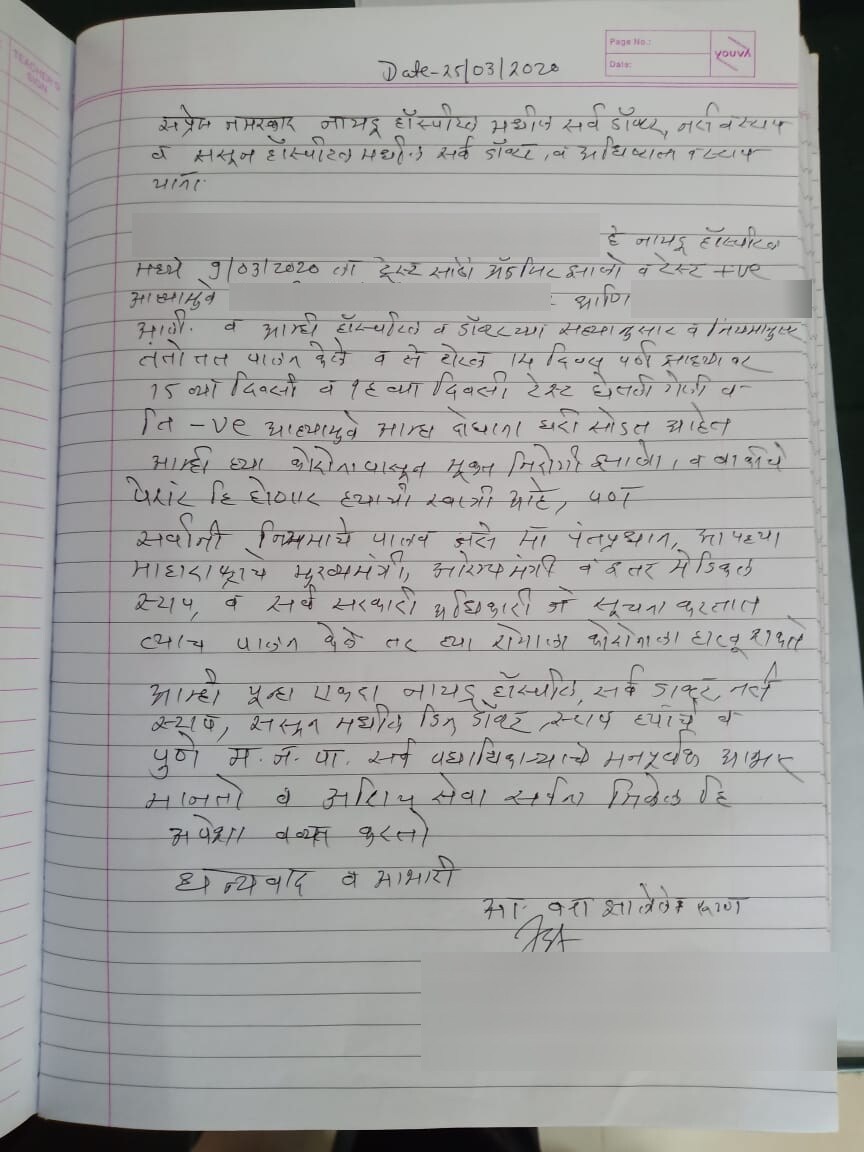 TEACHER'S
SIGN
Page No.:
Date:
youva
Date-25/03/2020
सप्रेम नमस्कार नायडू हॉस्पीटल मधील सर्व डॉक्टर, नर्स व स्टाप
व ससून हॉस्पीटल मधील सर्व डॉक्टर, व अधिष्ठाता व स्टाप
यांना.
हे नायडू हॉस्पीटल
मध्ये 9/03/2020 ला टेस्ट साठी अ‍ॅडमिट झालो व टेस्ट +ve
आल्यामुळे आणि
आली. व आम्ही हॉस्पीटल व डॉक्टरच्या सल्यानुसार व नियमानुसार
तंतोतत पालन केले व से टोटल 14 दिवस पूर्ण झाल्यावर
15 व्या दिवसी व १६ व्या दिवसी टेस्ट घेतली गेली व
ति -ve आल्यामुळे आम्हा दोघांना घरी सोडत आहेत
आम्ही ह्या कोरोनापासून मूक्त निरोगी झालो, व बाकीचे
पेशंट हि होणार ह्याची खात्री आहे, पण
सर्वांनी नियमाचे पालन करा मा पंतप्रधान, आपल्या
माहाराष्ट्राचे मूख्यमंत्री, आरोग्यमंत्री व इतर मेडिकल
स्टाप, व सर्व सरकारी अधिकारी जे सूचना करतात
त्याच पालन केले तर ह्या रोगाला कोरोनाला हारवू शकतो
आम्ही पून्हा एकदा नायडू हॉस्पीटल, सर्व डाक्टर, नर्स
स्टाप, ससून मधील डिन डॉक्टर, स्टाप ह्यांचे व
पुणे म. न. पा. सर्व पदाधिकाऱ्याचे मनपूर्वक आभार
मानतो व अशिच सेवा सर्वांना मिळेल हि
अपेक्षा व्यक्त करतो
धन्यवाद व आभारी
आ. बरा झालेले रूग्ण